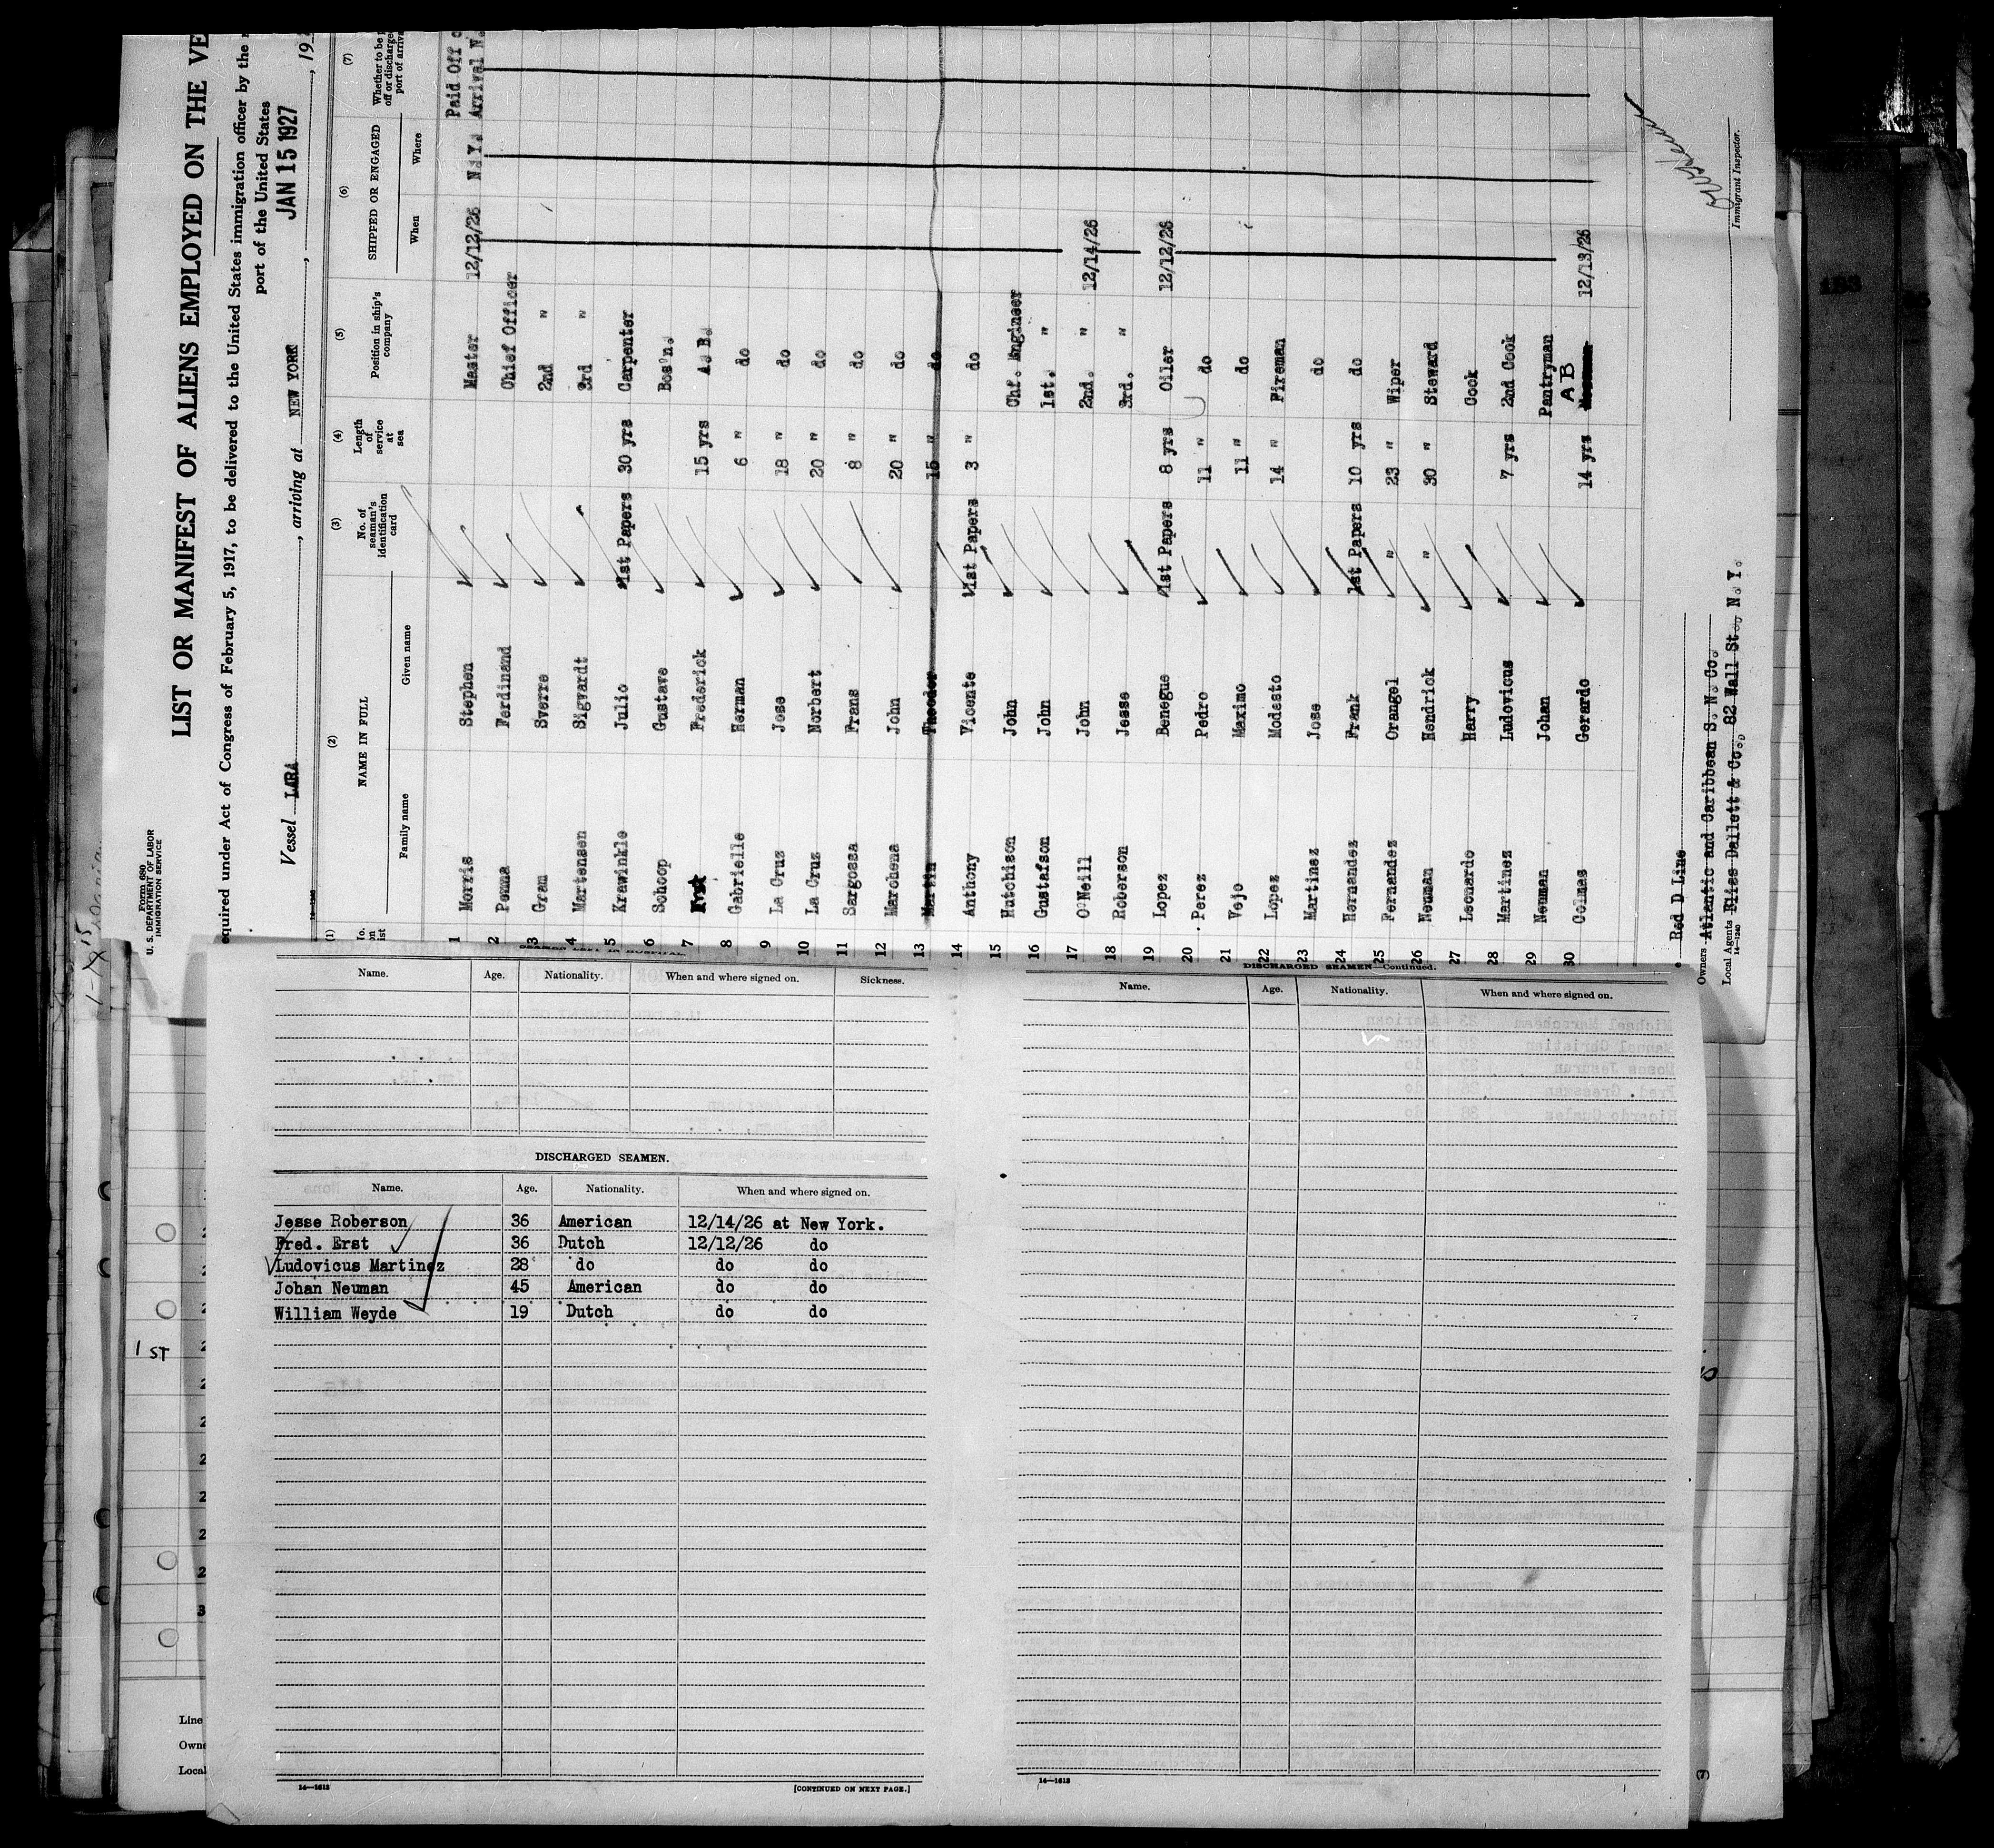 Form 680
U. S. DEPARTMENT OF LABOR
IMMIGRATION SERVICE
LIST OR MANIFEST OF ALIENS EMPLOYED ON THE VE
equired under Act of Congress of February 5, 1917, to be delivered to the United States immigration officer by the
port of the United States
Vessel LARA, arriving at NEW YORK, JAN 15 1927, 19
(1) (2) (3) (4) (5) (6) (7)
NAME IN FULL
Family name Given name
No. of seaman's identification card
Length of service at sea
Position in ship's company
SHIPPED OR ENGAGED
When Where
Whether to be off or discharge port of arriva
1 Morris Stephen Master 12/12/26 N.Y. Paid Off Arrival N.
2 Penna Ferdinand Chief Officer
3 Gram Sverre 2nd "
4 Martensen Sigvardt 3rd "
5 Krawinkle Julio 1st Papers 30 yrs Carpenter
6 Schoop Gustave Bos'n.
7 Frederick 15 yrs A. B.
8 Gabrielle Herman 6 " do
9 La Cruz Jose 18 " do
10 La Cruz Norbert 20 " do
11 Sargossa Frans 8 " do
12 Marchena John 20 " do
13 Martin Theodor 15 " do
14 Anthony Vicente 1st Papers 3 " do
15 Hutchison John Chf. Engineer
16 Gustafson John 1st. "
17 O'Neill John 2nd. " 12/14/26
18 Roberson Jesse 3rd. "
19 Lopez Benegue 1st Papers 8 yrs Oiler 12/12/26
20 Perez Pedro 11 " do
21 Vejo Maximo 11 " do
22 Lopez Modesto 14 " Fireman
23 Martinez Jose do
24 Hernandez Frank 1st Papers 10 yrs do
25 Fernandez Orangel " 23 " Wiper
26 Neuman Hendrick " 30 " Steward
27 Leonardo Harry Cook
28 Martinez Ludovicus 7 yrs 2nd Cook
29 Neuman Johan Pantryman
30 Colmes Gerardo 14 yrs A B 12/13/26
Red D Line
Owners Atlantic and Caribbean S. N. Co.
Local Agents Bliss Dallett & Co., 82 Wall St., N. Y.
14—1240
Immigrant Inspector.
Name. Age. Nationality. When and where signed on. Sickness.
DISCHARGED SEAMEN.
Name. Age. Nationality. When and where signed on.
Jesse Roberson 36 American 12/14/26 at New York.
Fred. Erst 36 Dutch 12/12/26 do
Ludovicus Martinez 28 do do do
Johan Neuman 45 American do do
William Weyde 19 Dutch do do
14—1613
[CONTINUED ON NEXT PAGE.]
DISCHARGED SEAMEN—Continued.
Name. Age. Nationality. When and where signed on.
14—1613
1 ST
Line
Owne
Local